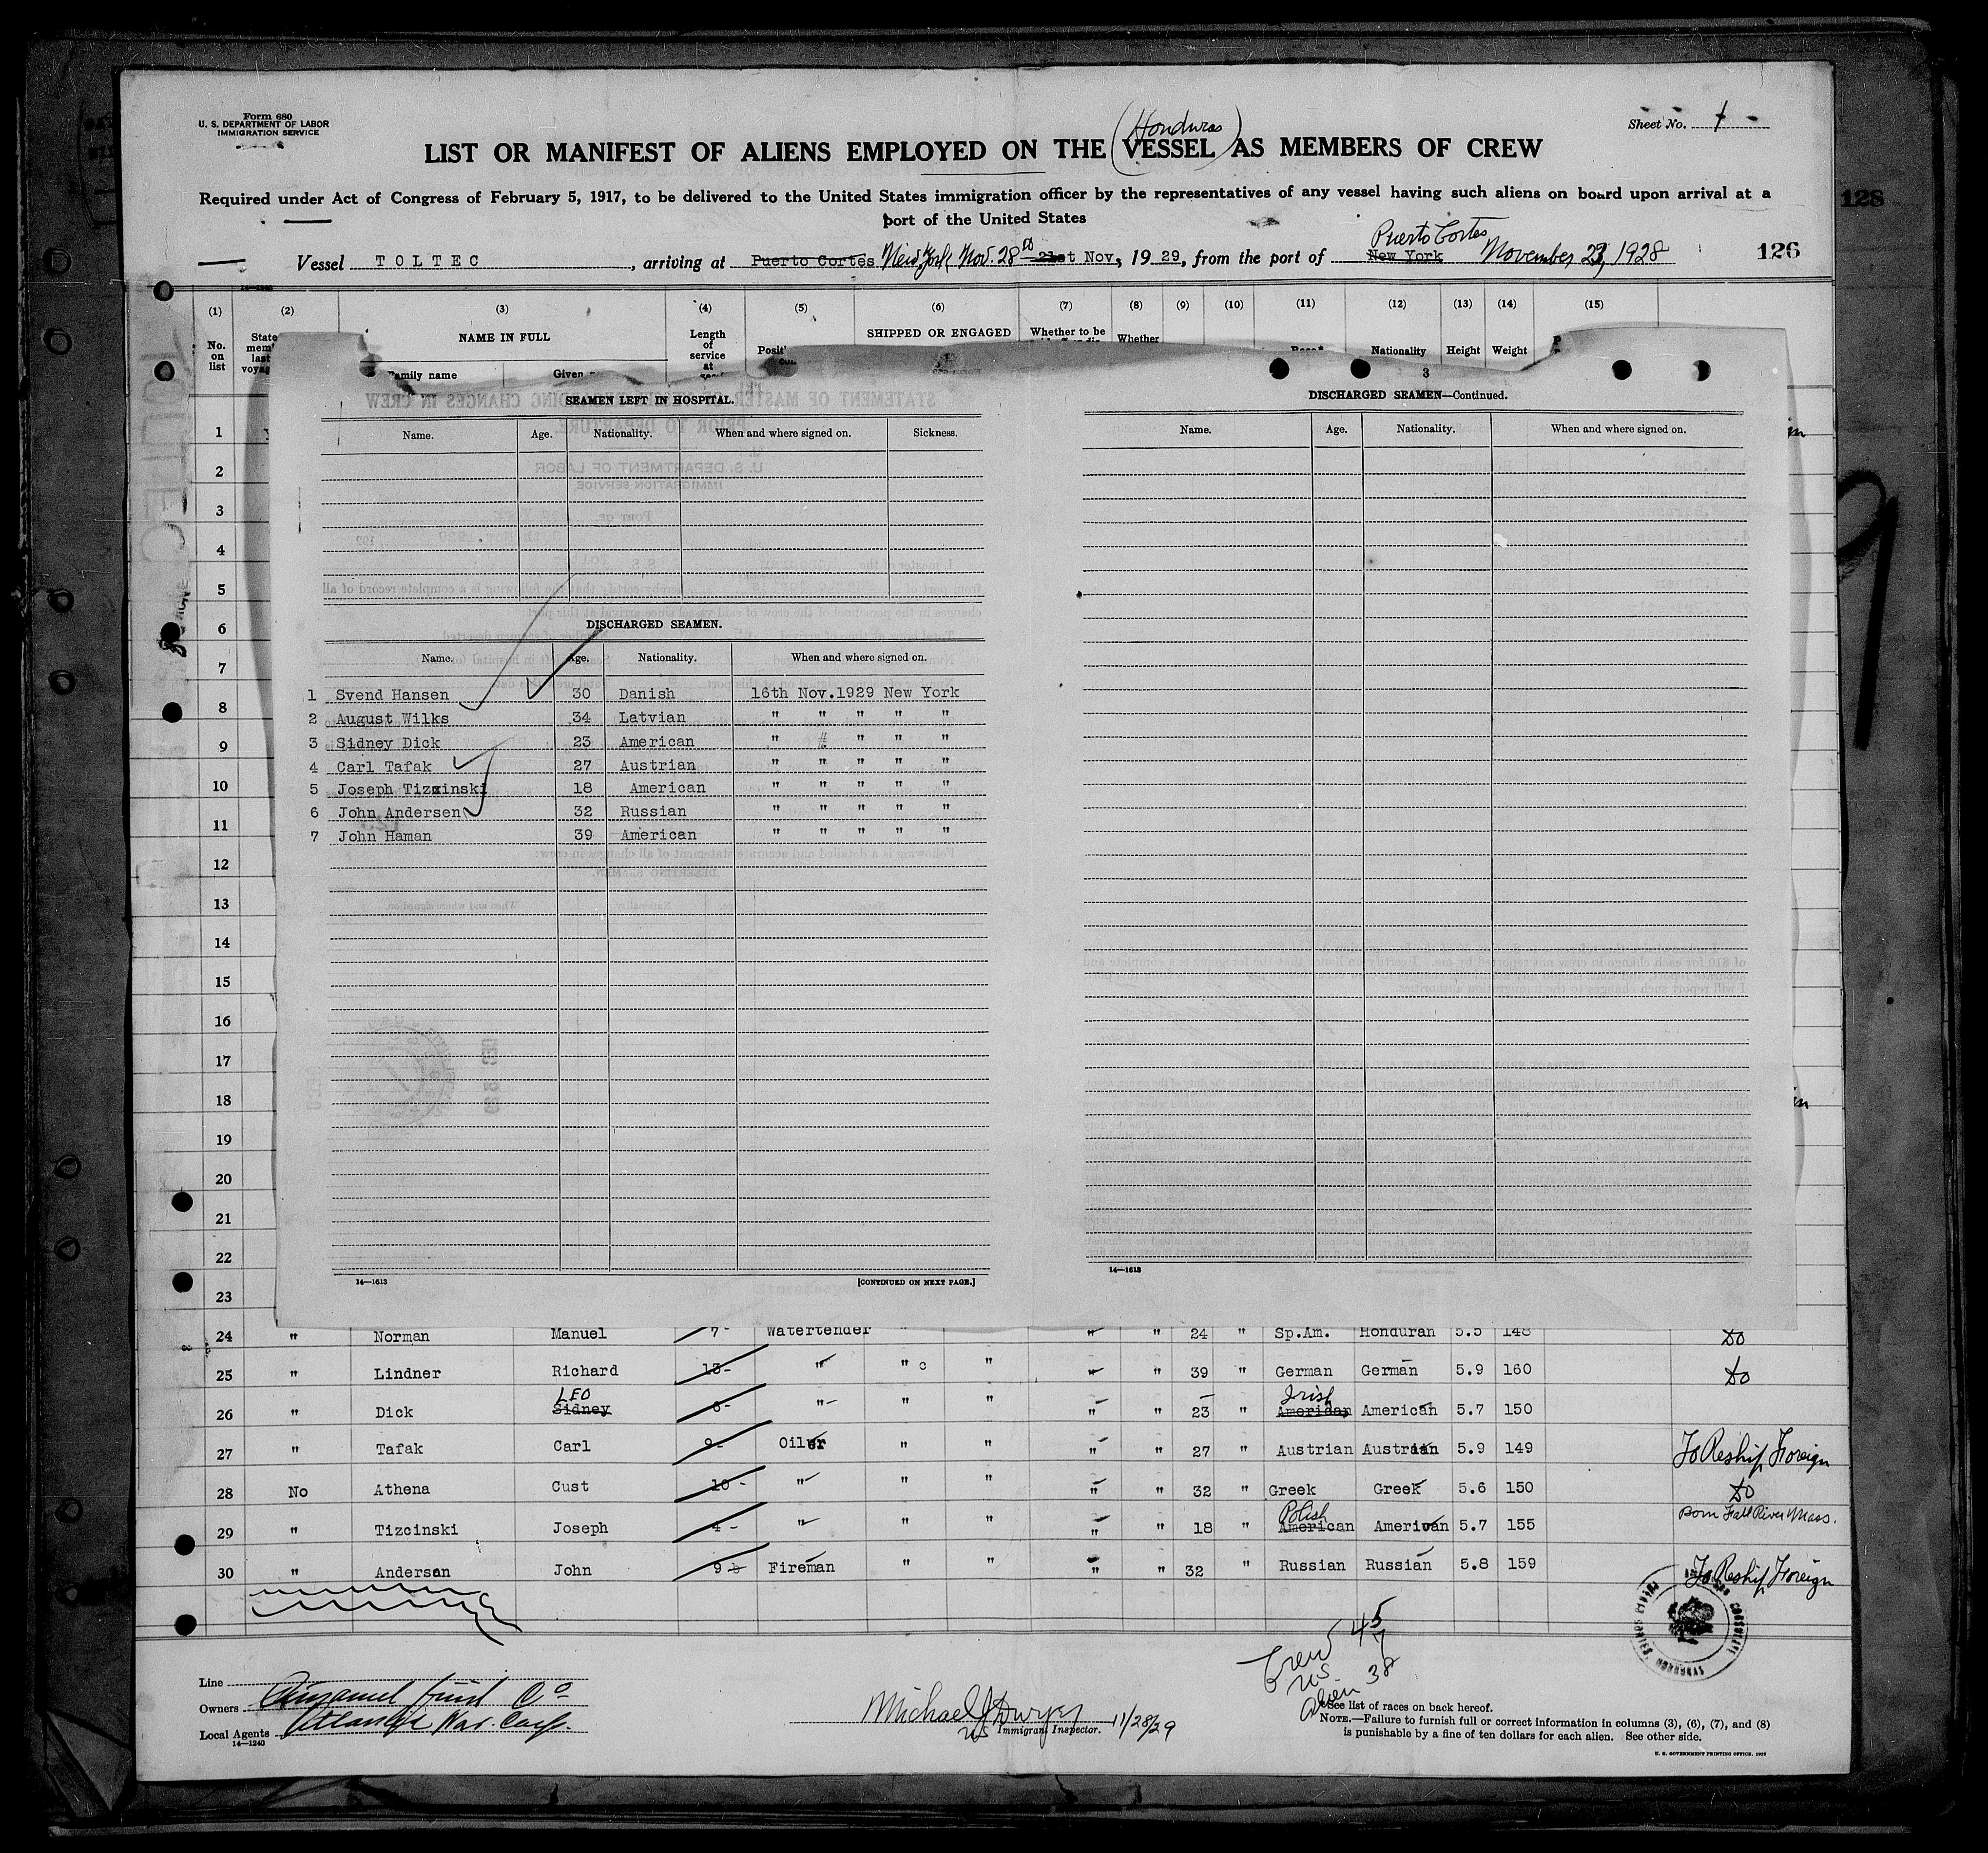 Form 680
U. S. DEPARTMENT OF LABOR
IMMIGRATION SERVICE
Sheet No. 1
(Honduras)
LIST OR MANIFEST OF ALIENS EMPLOYED ON THE VESSEL AS MEMBERS OF CREW
Required under Act of Congress of February 5, 1917, to be delivered to the United States immigration officer by the representatives of any vessel having such aliens on board upon arrival at a
port of the United States
128
Vessel TOLTEC, arriving at Puerto Cortes New York Nov. 28th 21st Nov, 1929, from the port of New York Puerto Cortes November 23, 1928
126
(1) (2) (3) (4) (5) (6) (7) (8) (9) (10) (11) (12) (13) (14) (15)
No. on list
NAME IN FULL
Family name Given
Length of service at
SHIPPED OR ENGAGED
Whether to be
Whether
Nationality Height Weight
3
SEAMEN LEFT IN HOSPITAL.
Name. Age. Nationality. When and where signed on. Sickness.
DISCHARGED SEAMEN.
Name. Age. Nationality. When and where signed on.
1 Svend Hansen 30 Danish 16th Nov.1929 New York
2 August Wilks 34 Latvian " " " " "
3 Sidney Dick 23 American " " " " "
4 Carl Tafak 27 Austrian " " " " "
5 Joseph Tizzinski 18 American " " " " "
6 John Andersen 32 Russian " " " " "
7 John Haman 39 American " " " " "
14—1613
[CONTINUED ON NEXT PAGE.]
DISCHARGED SEAMEN—Continued.
Name. Age. Nationality. When and where signed on.
14—1613
1
2
3
4
5
6
7
8
9
10
11
12
13
14
15
16
17
18
19
20
21
22
23
24 " Norman Manuel 7 Watertender " " " 24 " Sp.Am. Honduran 5.5 148 do
25 " Lindner Richard 13 " " " " " 39 " German German 5.9 160 do
26 " Dick Sidney LEO 6 " " " " " 23 " American Irish American 5.7 150
27 " Tafak Carl 9 Oiler " " " " 27 " Austrian Austrian 5.9 149 To Reship Foreign
28 No Athena Cust 10 " " " " " 32 " Greek Greek 5.6 150 do
29 " Tizcinski Joseph 4 " " " " " 18 " American Polish American 5.7 155 Born Fall River Mass.
30 " Anderson John 9 Fireman " " " " 32 " Russian Russian 5.8 159 To Reship Foreign
Crew 45
US 7
Alien 38
Line
Owners Cuyamel Fruit Co
Local Agents Atlantic Nav. Corp.
14—1240
Michael J Dwyer 11/28/29
US Immigrant Inspector.
*See list of races on back hereof.
NOTE.—Failure to furnish full or correct information in columns (3), (6), (7), and (8)
is punishable by a fine of ten dollars for each alien. See other side.
U. S. GOVERNMENT PRINTING OFFICE. 1929